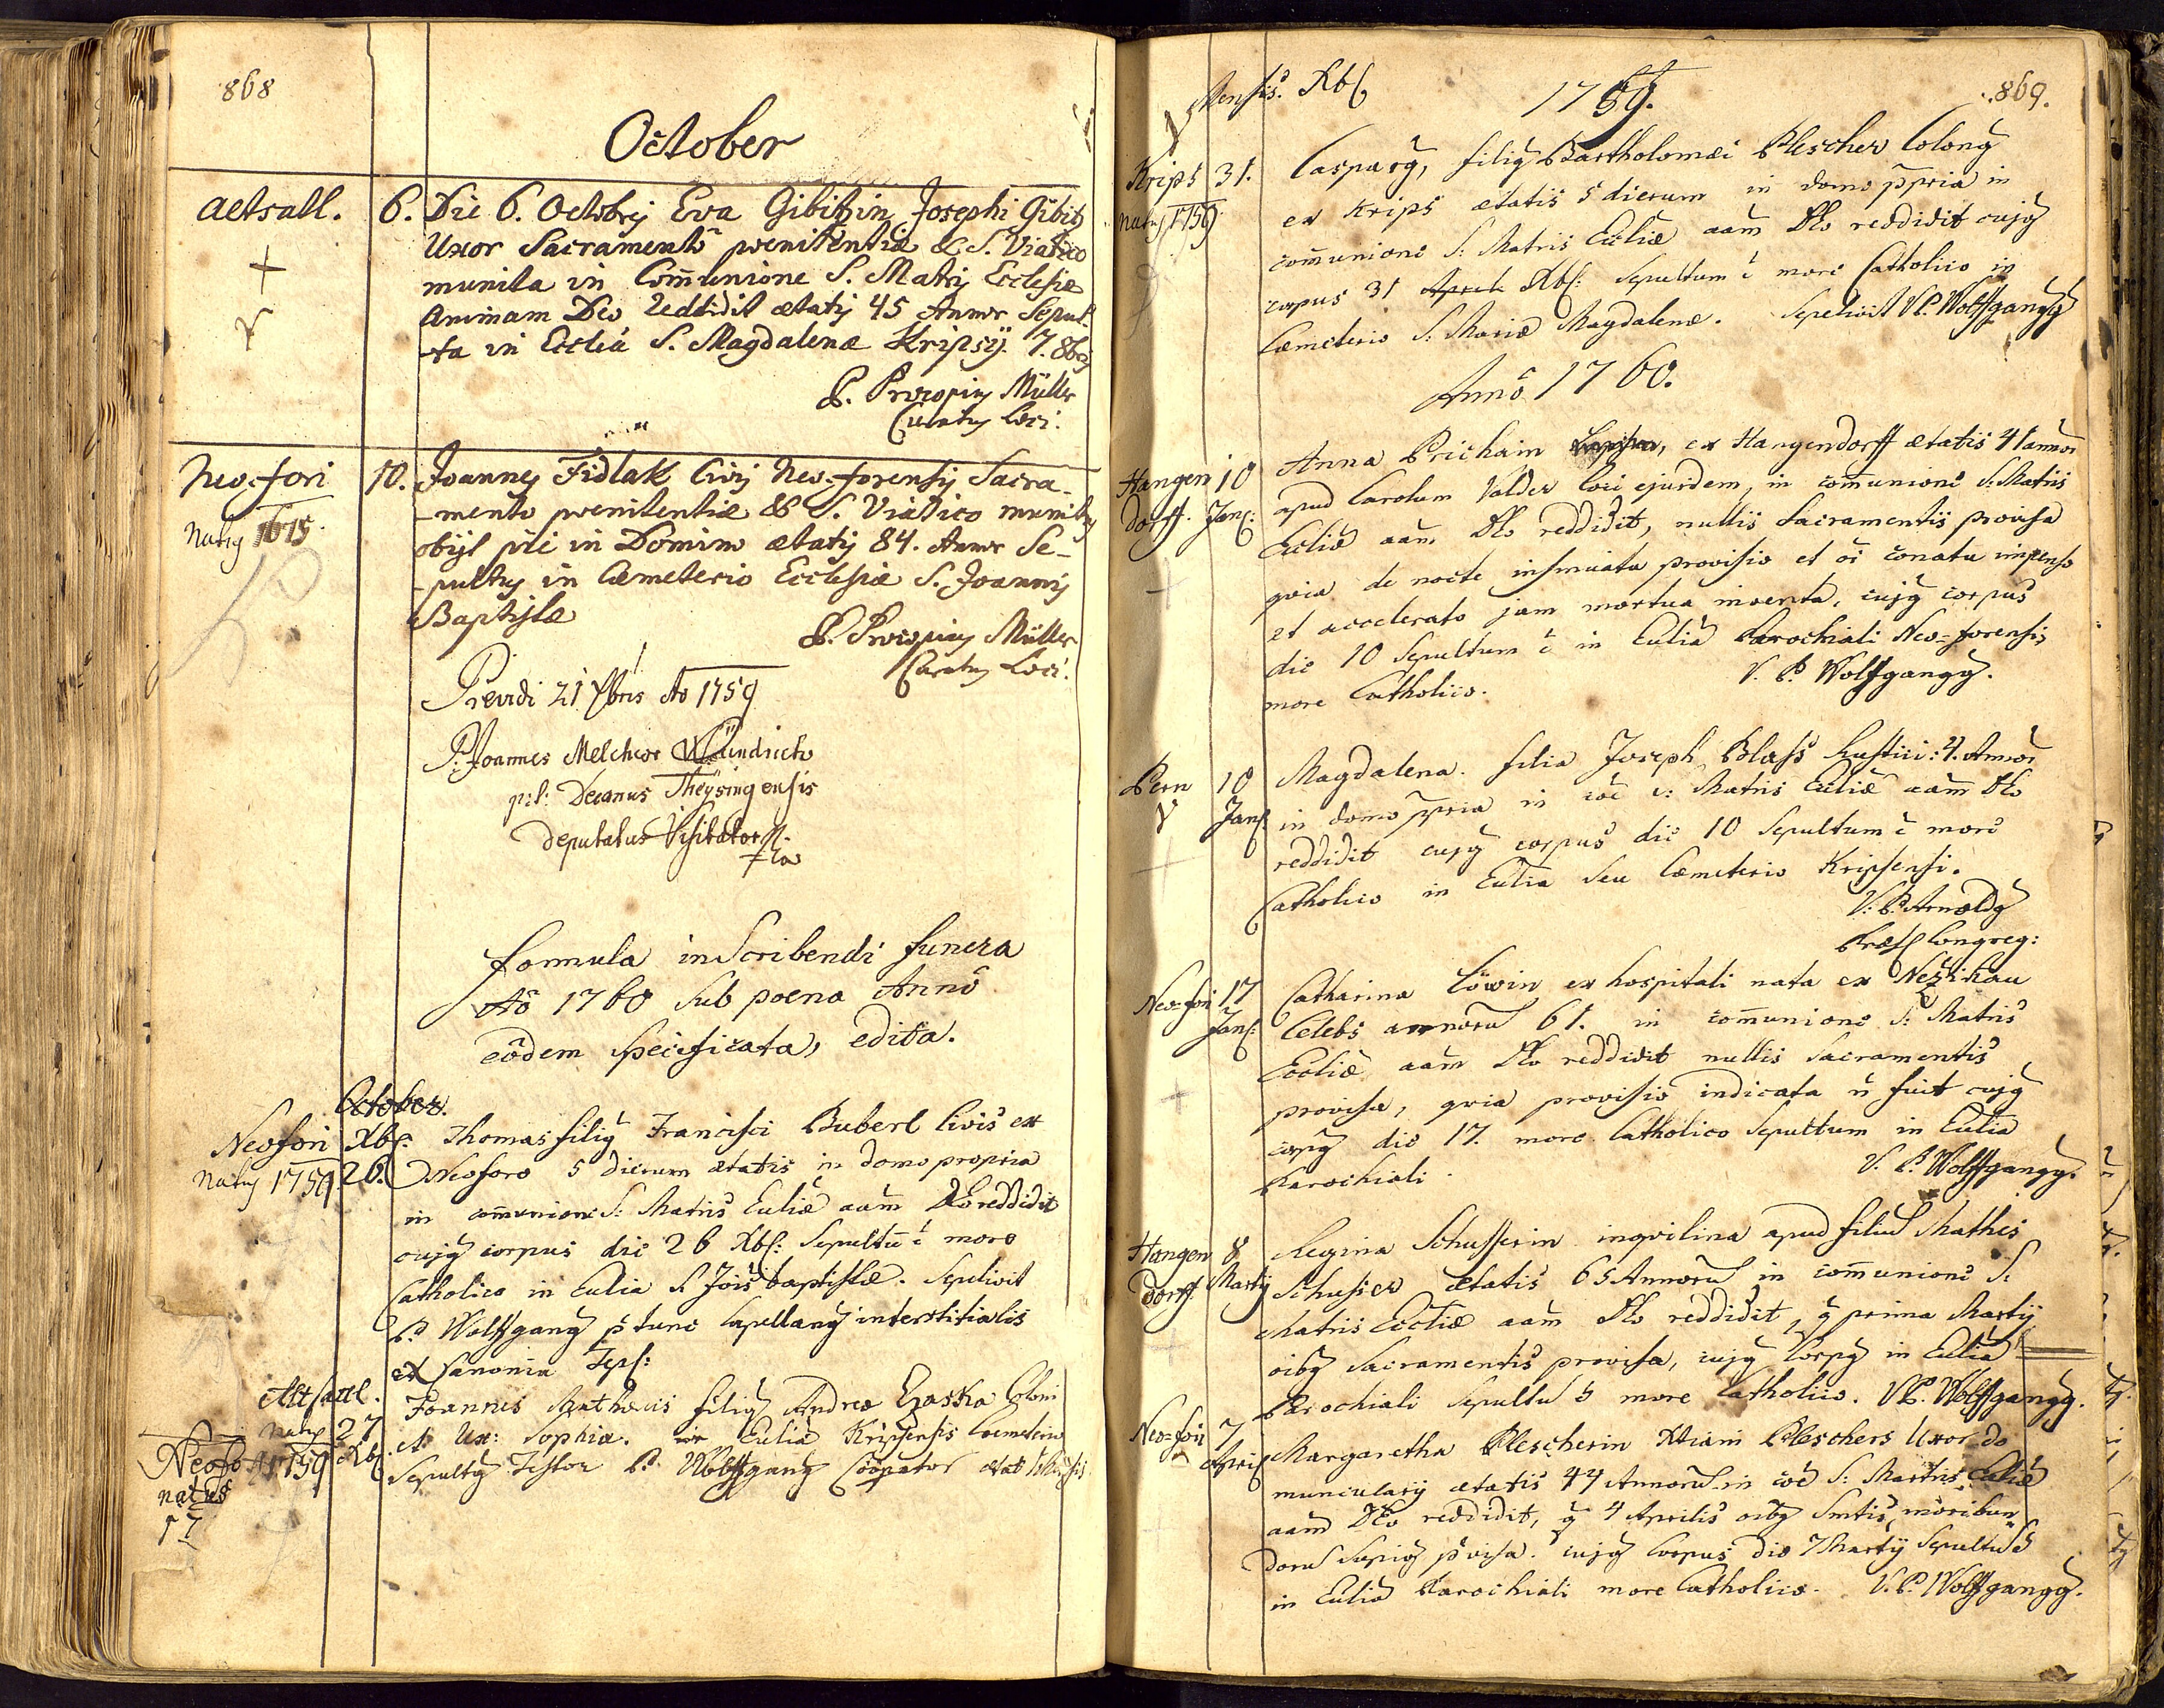 868
October
Actsatl. 6. Die 6. Octobrij Eva Gibitzin Josephi Gibitz
Uxor Sacramento poenitentiæ & S. Viatico
munita in Com̃unione S. Matrij Ecclesiæ
Animam Deo reddidit ætatij 45 Annor Sepul-
-ta in Ecclia S. Magdalenæ Kripsij. 7. 8brij
P. Procopiy Müller
Curaty Loci.
Neo-fori 10. Joannej Fidlak Civij Neo-forensij Sacra-
Naty 1675. -mento poenitentiæ & S. Viatico munity
obijt pie in Domino ætatij 84. Annor Se-
-pulty in Cæmeterio Ecclesiæ S. Joannij
Baptistæ
P. Procopiy Müller
Curaty Loci.
Revidi 21 Xbris Ao 1759
P. Joannes Melchior Wündrich
Decanus Theÿsingensis
Deputatus Visitator
formula inscribendi funera
Ao 1760 sub poena Anno
eodem specificata, edita.
October.
Neofori Xbr: Thomas filiy Francisci Buberl Civis ex
Naty 1759 26. Neoforo 5 dierum ætatis in domo propria
in com̃unione S: Matris Eccliæ aam̃ Deo reddidit
cujy corpus die 26 Xbr: Sepultũ ẽ more
Catholico in Ecclia S. Jois baptistæ. Sepelivit
P. Wolfgang p tunc Capellany interstitialis
ex Canonia Tepl:
Altsattl.
Naty 27 Joannes Mathæus filiy Andreæ Haska Coloni
1759 Xbr et Ux: Sophiæ. in Ecclia Kripsensis Coemeterio
Neofo Sepulty Testor P. Wolffgang Cooperator
natus
17
Mensis. Xbr 1759. 869.
Krips 31. Caspary, filiy Bartholomæi Plescher Colony
naty 1759 ex Krips ætatis 5 dierum in domo ppria in
com̃unione S: Matris Eccliæ aam̃ Deo reddidit cujy
corpus 31 Xbr: Sepultum ẽ more Catholico in
Cæmeterio S: Mariæ Magdalenæ. Sepelivit V. P. Wolffgangy
Anno 1760.
Hangen 10 Anna Prichain, ex Hangendorff ætatis 41 annor
dorff. Jan: apud Carolum Valder loci ejusdem, in com̃unione S: Matris
Eccliæ aam̃ Deo reddidit, nullis Sacramentis provisa
quia de nocte insinuata provisio et oi conatu impenso
et accelerato jam mortua inventa, cujy corpus
die 10 Sepultum ẽ in Ecclia Parochiali Neo=forensi,
more Catholico. V. P. Wolffgangy.
Pern 10 Magdalena. filia Joseph Blass Rustici: 4. Annor
Jan: in domo ppria in coe S: Matris Eccliæ aam̃ Deo
reddidit cujy corpus die 10 Sepultum ẽ more
Catholico in Ecclia seu Cæmeterio Kripsensi.
V: P. Arnoldy
Præs Congreg:
Neo=fori 17 Catharina Löwin ex hospitali nata ex Nežikau
Jan: Celebs annorũ 61. in com̃unione S: Matris
Eccliæ aam̃ Deo reddidit nullis Sacramentis
provisa, quia provisio indicata ñ fuit cujy
corpy die 17. more Catholico Sepultum in Ecclia
Parochiali. V. P. Wolffgangy.
Hangen 8 Regina Schusserin inquilina apud filiũ Mathes
dorff. Martij Schusser ætatis 65 Annorũ in com̃unione S:
Matris Eccliæ aam̃ Deo reddidit, q prima Martij
oiby Sacramentis provisa, cujy Corpy in Ecclia
Parochiali Sepultũ ẽ more Catholico. V. P. Wolffgangy.
Neo=fori 7 Margaretha Plescherin Xtiani Pleschers Uxor do
Apri munculary ætatis 44 Annorũ in coe S: Matris Eccliæ
aam̃ Deo reddidit, q 4 Aprilis oiby Smtis moribun
dorũ sæpiy pvisa. cujy Corpus die 7 Martij Sepultũ ẽ
in Ecclia Parochiali more Catholico. V. P. Wolffgangy.